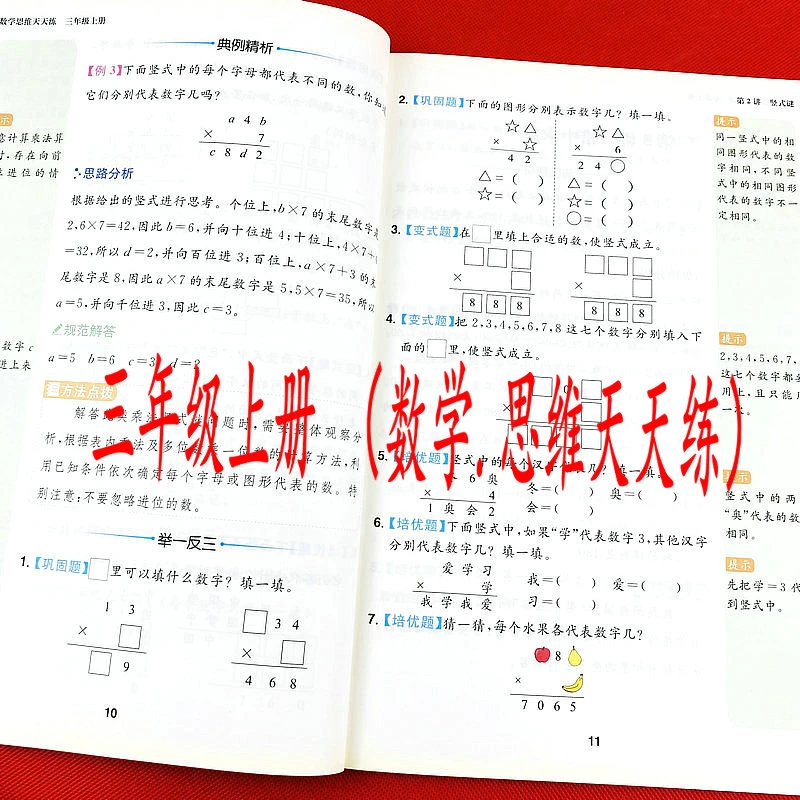 数学思维天天练 三年级上册
典例精析
【例3】下面竖式中的每个字母都代表不同的数,你知道
它们分别代表数字几吗?
a 4 b
× 7
c 8 d 2
思路分析
根据给出的竖式进行思考。个位上,b×7的末尾数字是
2,6×7=42,因此b=6,并向十位进4;十位上,4×7+4
=32,所以d=2,并向百位进3;百位上,a×7+3的末
尾数字是8,因此a×7的末尾数字是5,5×7=35,所以
a=5,并向千位进3,因此c=3。
规范解答
a=5 b=6 c=3 d=2
方法点拨
解答此类乘法竖式谜问题时,需要整体观察分
析,根据表内乘法及多位数乘一位数的计算方法,利
用已知条件依次确定每个字母或图形代表的数。特
别注意:不要忽略进位的数。
举一反三
1.【巩固题】□里可以填什么数字?填一填。
1 3
× □
□ 9
□ 3 4
× □
4 6 8
10
示
意计算乘法算
时,存在向前
位进位的情
数字c
进上来
第2讲 竖式谜
2.【巩固题】下面的图形分别表示数字几?填一填。
☆△
× ☆
4 2
△=( )
☆=( )
☆△
× 6
2 4 ○
△=( )
☆=( )
○=( )
3.【变式题】在□里填上合适的数,使竖式成立。
□□□
× □
8 8 8
□□□
× □
8 8 8
4.【变式题】把2,3,4,5,6,7,8这七个数字分别填入下
面的□里,使竖式成立。
□ 0 □
× □
□□□□
5.【培优题】竖式中的每个汉字代表几?填一填。
冬 6 奥
× 4
1 奥 会 2
冬=( ) 奥=( )
会=( )
6.【培优题】下面竖式中,如果“学”代表数字3,其他汉字
分别代表数字几?填一填。
爱 学 习
× 学
我 学 我 爱
我=( ) 爱=( )
习=( )
7.【培优题】猜一猜,每个水果各代表数字几?
8
×
7 0 6 5
11
提示
同一竖式中的相
同图形代表的数
字相同,不同竖
式中的相同图形
代表的数字不一
定相同。
提示
2,3,4,5,6,7,
这七个数字都要
用上,且只能用
一次。
提示
竖式中的两
“奥”代表的数
相同。
提示
先把学=3代
到竖式中。
三年级上册 (数学.思维天天练)